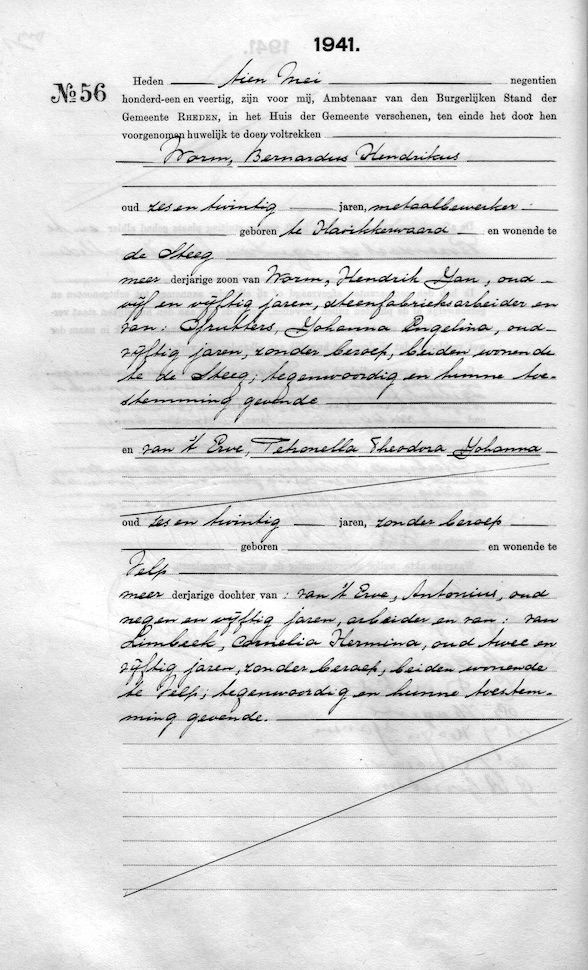 1941.
№ 56
Heden tien Mei negentien
honderd-een en veertig, zijn voor mij, Ambtenaar van den Burgerlijken Stand der
Gemeente RHEDEN, in het Huis der Gemeente verschenen, ten einde het door hen
voorgenomen huwelijk te doen voltrekken
Worm, Bernardus Hendrikus
oud zes en twintig jaren, metaalbewerker
geboren te en wonende te
de Steeg
meer derjarige zoon van Worm, Hendrik Jan, oud
vijf en vijftig jaren, steenfabrieksarbeider en
van: Sprutters, Johanna Engelina, oud
vijftig jaren, zonder beroep, beiden wonende
te de Steeg, tegenwoordig en hunne toe-
stemming gevende
en van 't Erve, Petronella Theodora Johanna
oud zes en twintig jaren, zonder beroep
geboren en wonende te
Velp
meer derjarige dochter van: van 't Erve, Antonius, oud
negen en vijftig jaren, arbeider en van: van
Limbeek, Cornelia Hermina, oud twee en
vijftig jaren, zonder beroep, beiden wonende
te Velp, tegenwoordig en hunne toestem-
ming gevende.